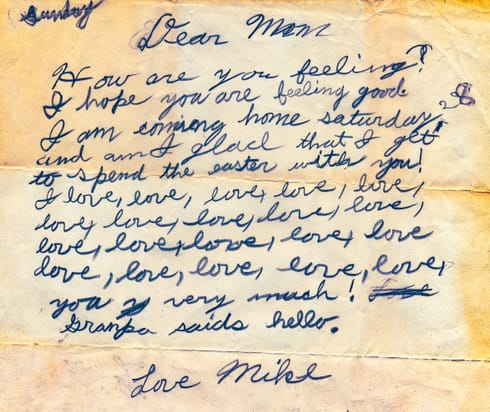 Sunday
Dear Mom
How are you feeling?
I hope you are feeling good.
I am coming home saturday,
and am I glad that I get
to spend the easter with you!
I love, love, love, love, love,
love, love, love, love, love,
love, love, love, love, love
love, love, love, love, love,
you very much!
Granpa saids hello.
Love Mike